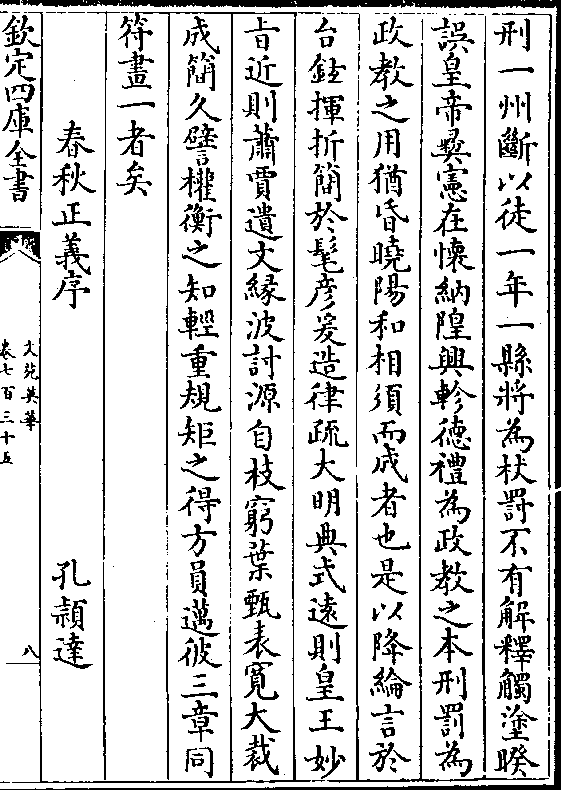 刑一州斷以徒一年一縣將為杖罰不有解釋觸塗睽
誤皇帝彛憲在懷納隍興軫德禮為政教之本刑罰為
政教之用猶昏曉陽和相須而成者也是以降綸言於
台鉉揮折簡於髦彦爰造律疏大明典式遠則皇王妙
㫖近則蕭賈遺文縁波討源自枝窮葉甄表寛大裁
成簡久譬權衡之知輕重規矩之得方員邁彼三章同
符畫一者矣
春秋正義序 孔頴達
欽定四庫全書
文苑英華
卷七百三十五
八